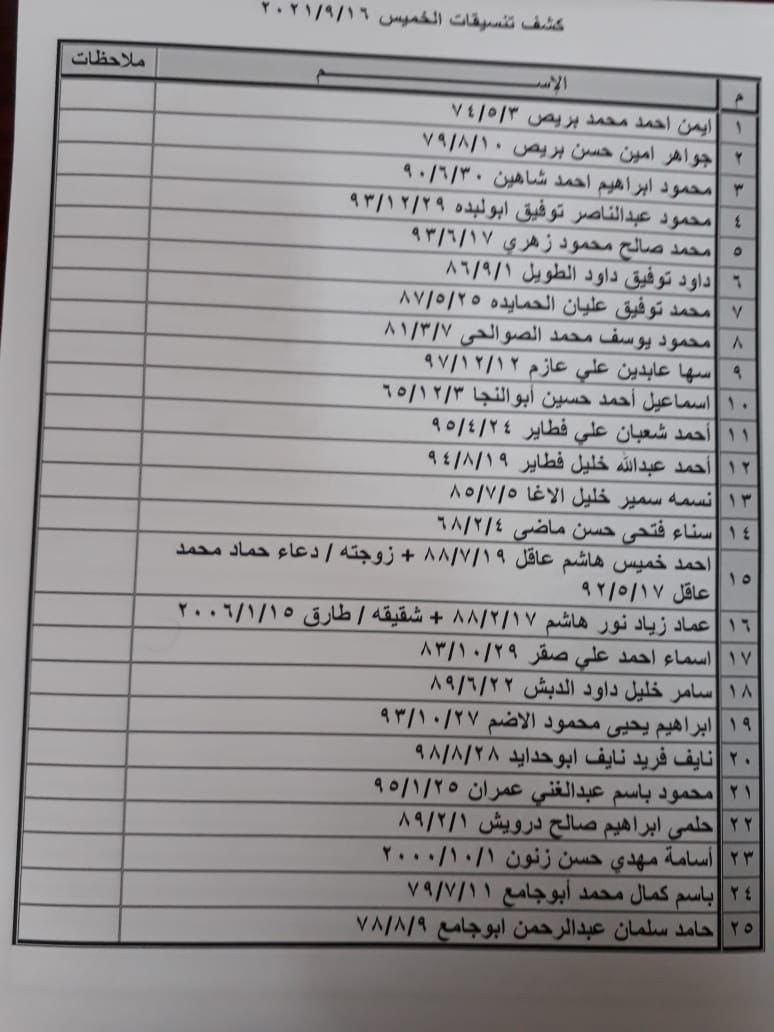 كشف تنسيقات الخميس ٢٠٢١/٩/١٦
م الإســـــــــم ملاحظات
١ ايمن احمد محمد بريص ٧٤/٥/٣
٢ جواهر امين حسن بريص ٧٩/٨/١٠
٣ محمود ابراهيم احمد شاهين ٩٠/٦/٣٠
٤ محمود عبدالناصر توفيق ابولبده ٩٣/١٢/٢٩
٥ محمد صالح محمود زهري ٩٣/٦/١٧
٦ داود توفيق داود الطويل ٨٦/٩/١
٧ محمد توفيق عليان الحمايده ٨٧/٥/٢٥
٨ محمود يوسف محمد الصوالحي ٨١/٣/٧
٩ سها عابدين علي عازم ٩٧/١٢/١٢
١٠ اسماعيل أحمد حسين أبوالنجا ٦٥/١٢/٣
١١ أحمد شعبان علي فطاير ٩٥/٤/٢٤
١٢ أحمد عبدالله خليل فطاير ٩٤/٨/١٩
١٣ نسمه سمير خليل الاغا ٨٥/٧/٥
١٤ سناء فتحي حسن ماضي ٦٨/٢/٤
١٥ احمد خميس هاشم عاقل ٨٨/٧/١٩ + زوجته / دعاء حماد محمد
عاقل ٩٢/٥/١٧
١٦ عماد زياد نور هاشم ٨٨/٢/١٧ + شقيقه / طارق ٢٠٠٦/١/١٥
١٧ اسماء احمد علي صقر ٨٣/١٠/٢٩
١٨ سامر خليل داود الدبش ٨٩/٦/٢٢
١٩ ابراهيم يحيى محمود الاضم ٩٣/١٠/٢٧
٢٠ نايف فريد نايف ابوحدايد ٩٨/٨/٢٨
٢١ محمود باسم عبدالغني عمران ٩٥/١/٢٥
٢٢ حلمي ابراهيم صالح درويش ٨٩/٢/١
٢٣ أسامة مهدي حسن زنون ٢٠٠٠/١٠/١
٢٤ باسم كمال محمد أبوجامع ٧٩/٧/١١
٢٥ حامد سلمان عبدالرحمن ابوجامع ٧٨/٨/٩